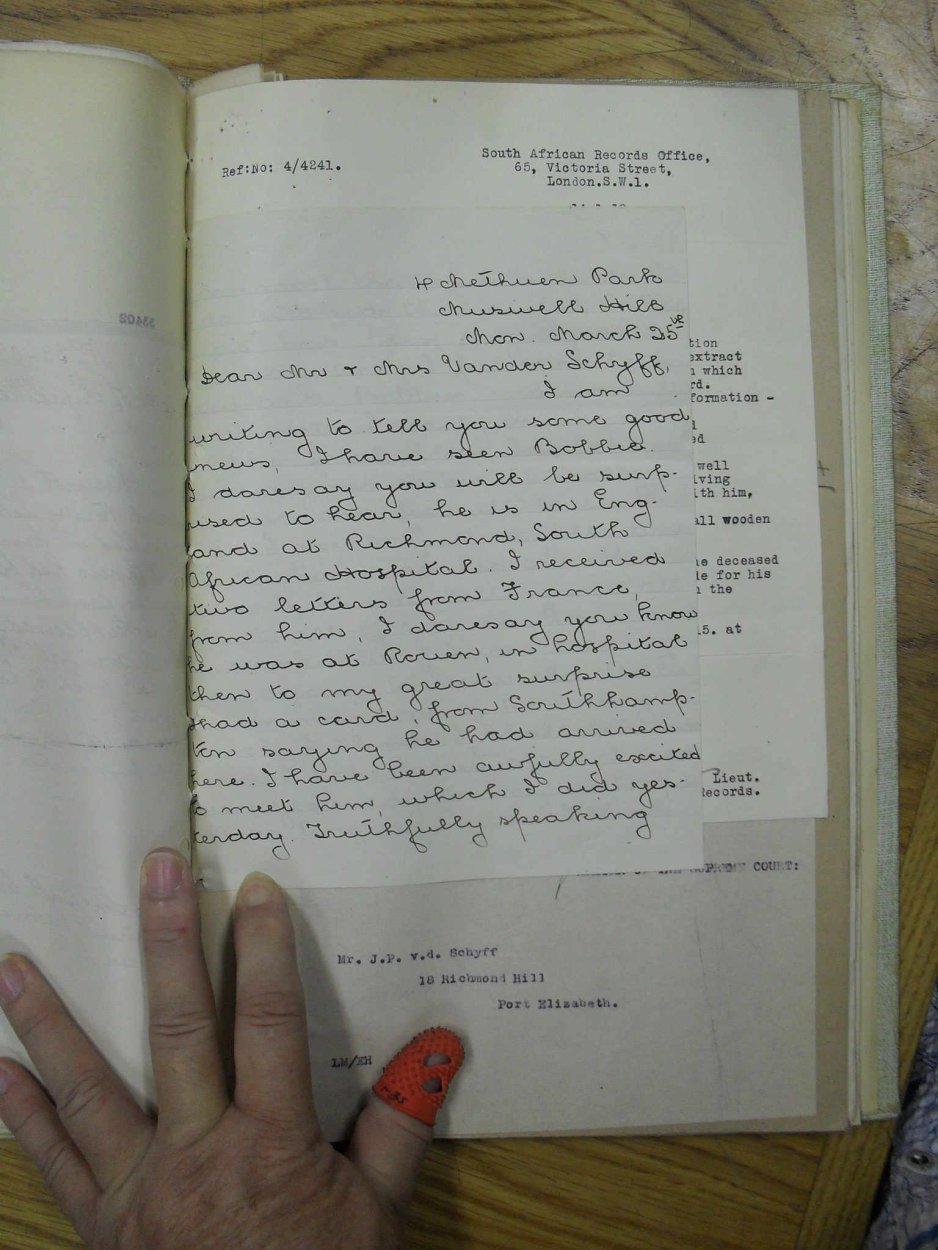 Ref:No: 4/4241.
South African Records Office,
65, Victoria Street,
London.S.W.1.
4 Methuen Park
Muswell Hill
Mon. March 25
Dear Mr & Mrs Vander Schyff,
I am
writing to tell you some good
news, I have seen Bobbie.
I daresay you will be surp-
ised to hear, he is in Eng-
and at Richmond, South
African Hospital. I received
two letters from France,
from him, I daresay you know
he was at Rouen, in hospital
then to my great surprise
I had a card, from Southhamp-
ton saying he had arrived
here. I have been awfully excited
to meet him, which I did yes-
terday. Truthfully speaking
tion
extract
which
rd.
formation -
ed
well
lving
ith him,
all wooden
e deceased
le for his
the
15. at
Lieut.
Records.
SUPREME COURT:
Mr. J.P. v.d. Schyff
18 Richmond Hill
Port Elizabeth.
LM/EH
33402